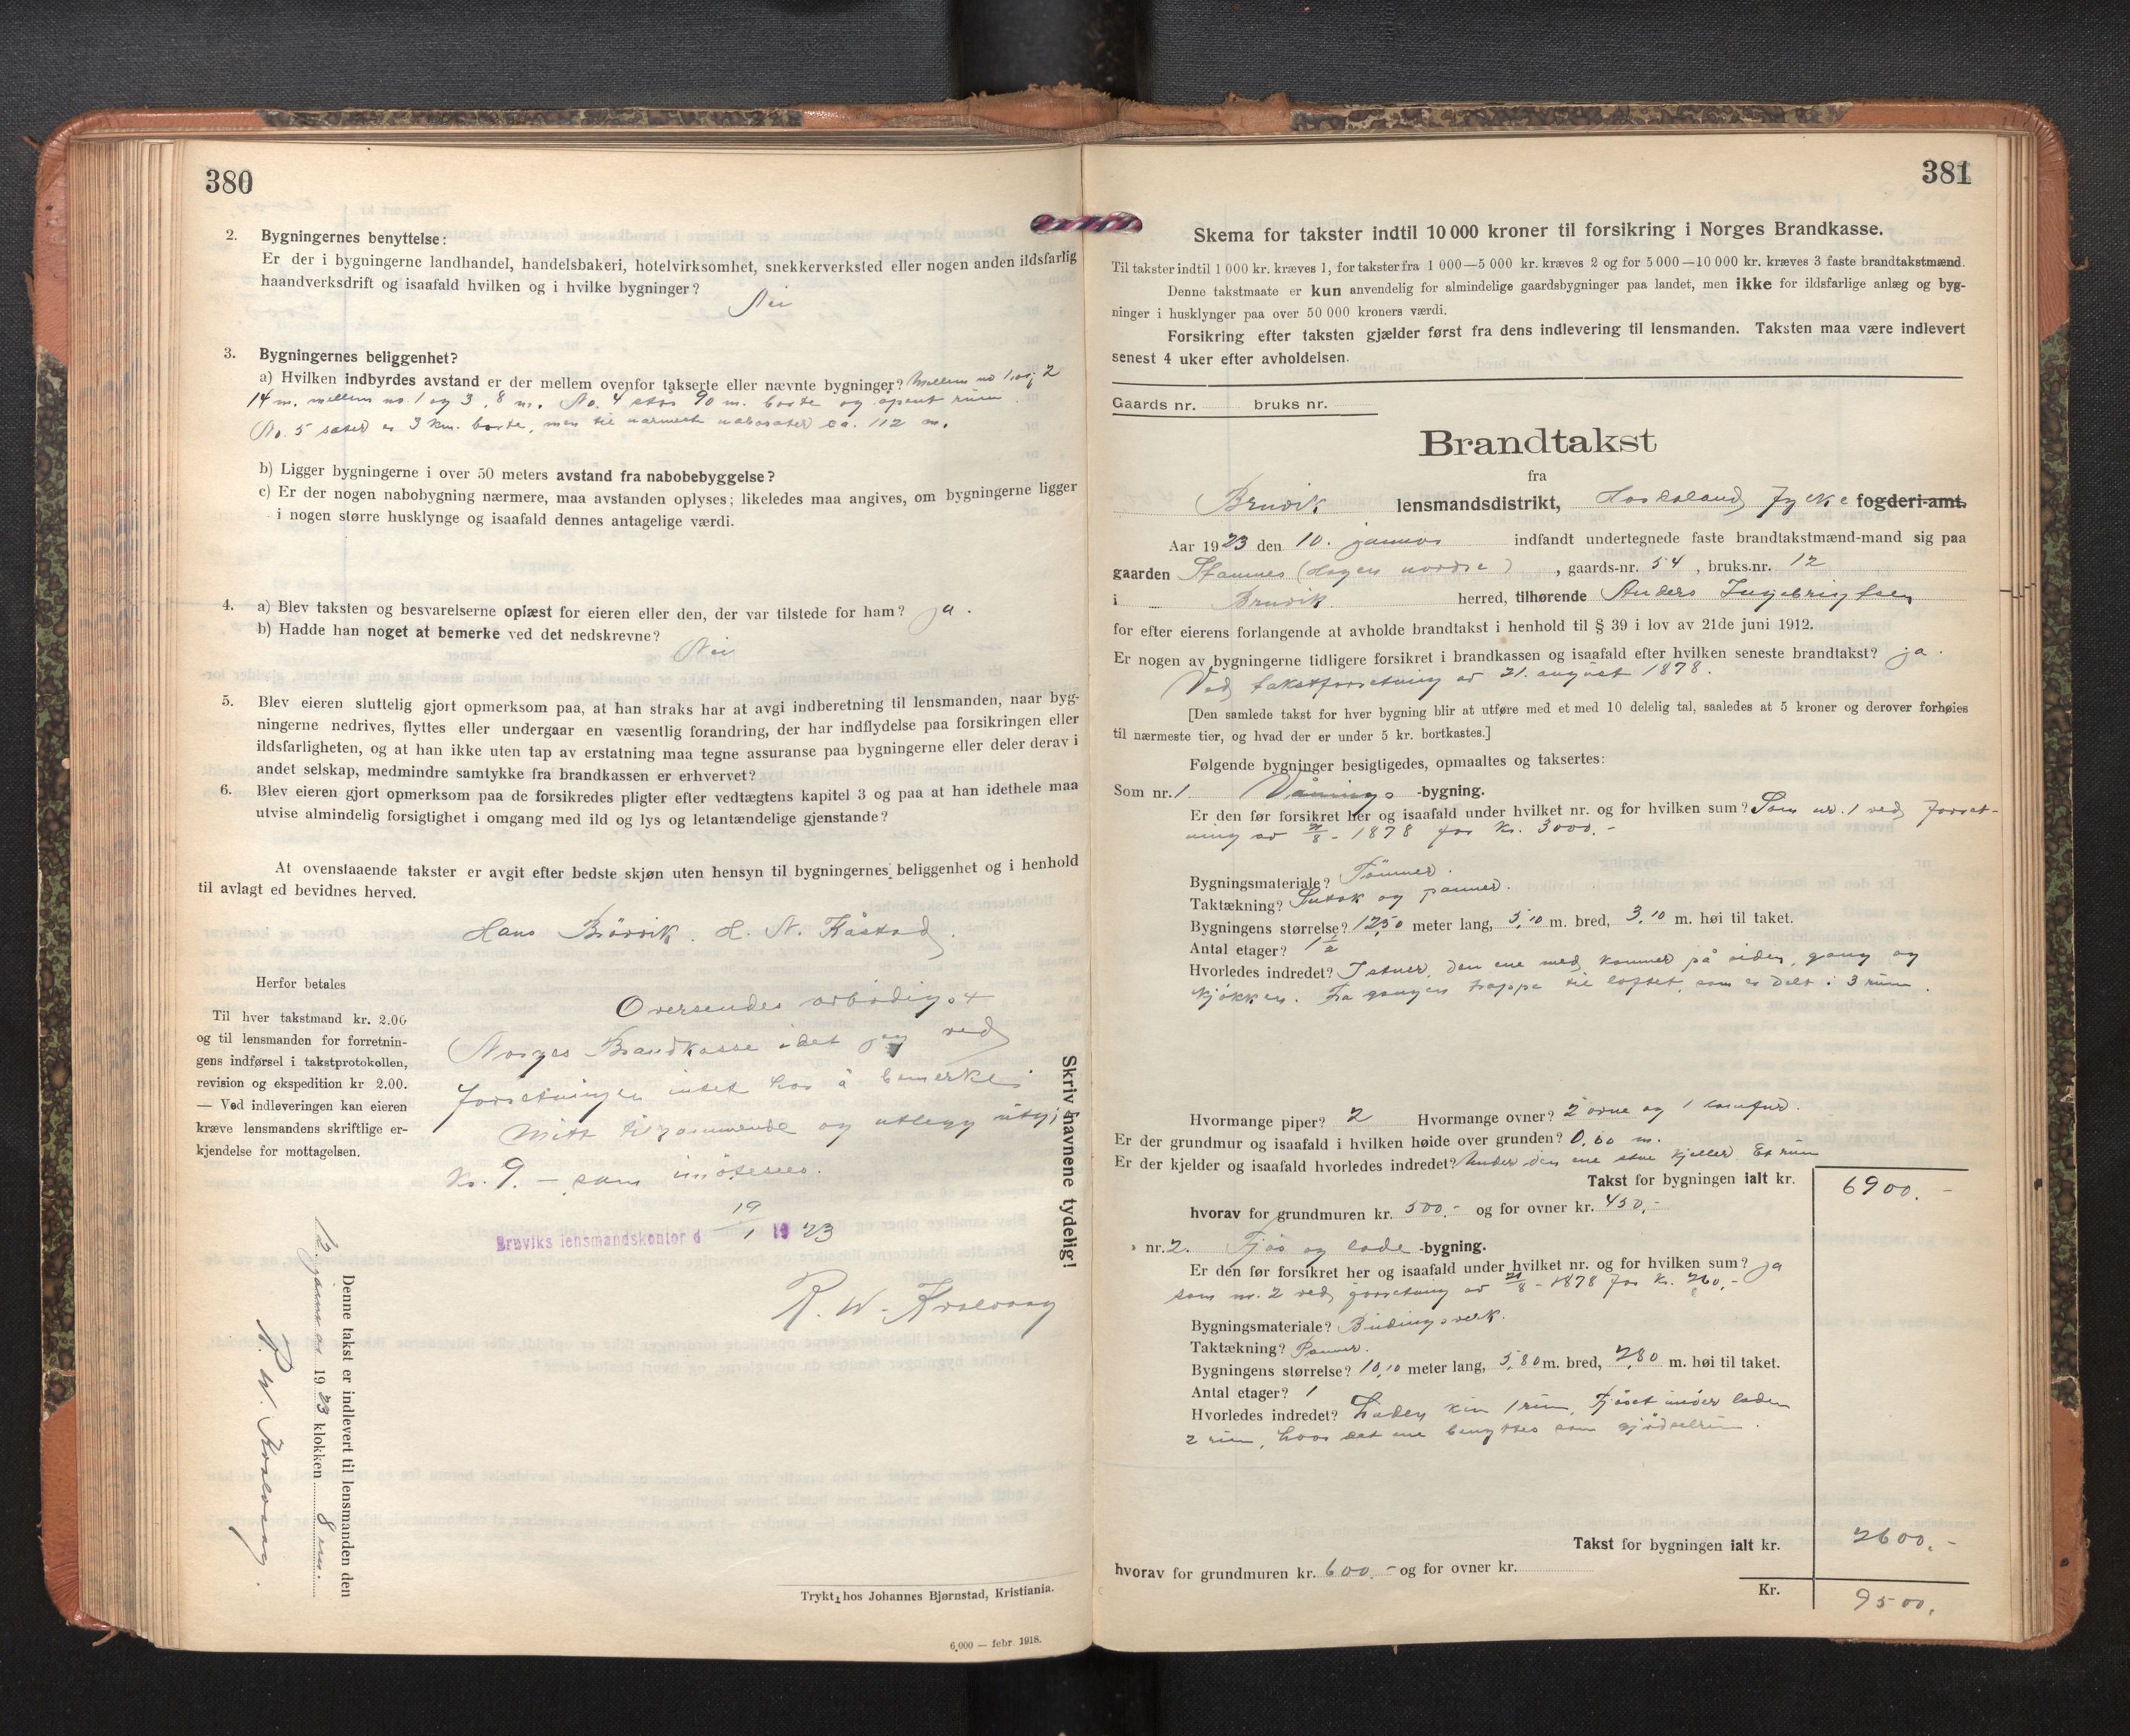 380
2. Bygningernes benyttelse:
Er der i bygningerne landhandel, handelsbakeri, hotelvirksomhet, snekkerverksted eller nogen anden ildsfarlig
haandverksdrift og isaafald hvilken og i hvilke bygninger?
Nei
3. Bygningernes beliggenhet?
a) Hvilken indbyrdes avstand er der mellem ovenfor takserte eller nævnte bygninger? Mellem no 1 og 2
14 m. mellem no. 1 og 3, 8 m. No. 4 står 90 m. borte og åpent rum
No. 5 sæter er 3 km. borte, men til nærmeste nabosæter ca. 112 m.
b) Ligger bygningerne i over 50 meters avstand fra nabobebyggelse?
c) Er der nogen nabobygning nærmere, maa avstanden oplyses; likeledes maa angives, om bygningerne ligger
i nogen større husklynge og isaafald dennes antagelige værdi.
4. a) Blev taksten og besvarelserne oplæst for eieren eller den, der var tilstede for ham? ja.
b) Hadde han noget at bemerke ved det nedskrevne?
Nei
5. Blev eieren sluttelig gjort opmerksom paa, at han straks har at avgi indberetning til lensmanden, naar byg-
ningerne nedrives, flyttes eller undergaar en væsentlig forandring, der har indflydelse paa forsikringen eller
ildsfarligheten, og at han ikke uten tap av erstatning maa tegne assuranse paa bygningerne eller deler derav i
andet selskap, medmindre samtykke fra brandkassen er erhvervet?
6. Blev eieren gjort opmerksom paa de forsikredes pligter efter vedtægtens kapitel 3 og paa at han idethele maa
utvise almindelig forsigtighet i omgang med ild og lys og letantændelige gjenstande?
At ovenstaaende takster er avgit efter bedste skjøn uten hensyn til bygningernes beliggenhet og i henhold
til avlagt ed bevidnes herved.
Hans H. N. Kåstad.
Herfor betales
Til hver takstmand kr. 2.00
og til lensmanden for forretnin-
gens indførsel i takstprotokollen,
revision og ekspedition kr 2.00.
— Ved indleveringen kan eieren
kræve lensmandens skriftlige er-
kjendelse for mottagelsen.
Oversendes ærbødigst
Norges Brandkasse idet jeg ved
forretningen intet har å bemerke.
Mitt tilkommende og utlegg utgj.
kr. 9. – som imøtesees.
Bruviks lensmandskontor d 19/1 1923
R. W.
Skriv navnene tydelig!
Denne takst er indlevert til lensmanden den
12. januar 1923 klokken 8 em.
R. W.
Trykt hos Johannes Bjørnstad, Kristiania.
6.000 — febr. 1918.
381
Skema for takster indtil 10 000 kroner til forsikring i Norges Brandkasse.
Til takster indtil 1 000 kr. kræves 1, for takster fra 1 000—5 000 kr. kræves 2 og for 5 000—10 000 kr. kræves 3 faste brandtakstmænd.
Denne takstmaate er kun anvendelig for almindelige gaardsbygninger paa landet, men ikke for ildsfarlige anlæg og byg-
ninger i husklynger paa over 50 000 kroners værdi.
Forsikring efter taksten gjælder først fra dens indlevering til lensmanden. Taksten maa være indlevert
senest 4 uker efter avholdelsen.
Gaards nr. bruks nr.
Brandtakst
fra
Bruvik lensmandsdistrikt, Hordaland fylke fogderi-amt.
Aar 1923 den 10. januar indfandt undertegnede faste brandtakstmænd-mand sig paa
gaarden Stamnes (Hagen nordre), gaards-nr. 54, bruks.nr. 12
i Bruvik herred, tilhørende Anders Ingebrigtsen
for efter eierens forlangende at avholde brandtakst i henhold til § 39 i lov av 21de juni 1912.
Er nogen av bygningerne tidligere forsikret i brandkassen og isaafald efter hvilken seneste brandtakst? ja.
Ved takstforretning av 21. august 1878.
[Den samlede takst for hver bygning blir at utføre med et med 10 delelig tal, saaledes at 5 kroner og derover forhøies
til nærmeste tier, og hvad der er under 5 kr. bortkastes.]
Følgende bygninger besigtigedes, opmaaltes og taksertes:
Som nr. 1 Vånings -bygning.
Er den før forsikret her og isaafald under hvilket nr. og for hvilken sum? Som nr. 1 ved forret-
ning av 21/8 - 1878 for kr. 3000.-
Bygningsmateriale? Tømmer.
Taktækning? Sutak og panner.
Bygningens størrelse? 12,50 meter lang, 5,10 m. bred, 3,10 m. høi til taket.
Antal etager? 1 1/2
Hvorledes indredet? 2 stuer, den ene med kammer på siden, gang og
kjøkken. Fra gangen trappe til loftet, som er delt i 3 rum.
Hvormange piper? 2 Hvormange ovner? 2 ovne og 1 komfur.
Er der grundmur og isaafald i hvilken høide over grunden? 0,60 m.
Er der kjelder og isaafald hvorledes indredet? Under den ene stue kjeller. Et rum
Takst for bygningen ialt kr. 6900.-
hvorav for grundmuren kr. 500.- og for ovner kr. 450.-
» nr. 2. Fjøs og lade -bygning.
Er den før forsikret her og isaafald under hvilket nr. og for hvilken sum? ja
som nr. 2 ved forretning av 21/8 - 1878 for kr. 260.-
Bygningsmateriale? Bindingsverk.
Taktækning? Panner.
Bygningens størrelse? 10,10 meter lang, 5,80 m. bred, 2,80 m. høi til taket.
Antal etager? 1
Hvorledes indredet? Laden kun 1 rum, Fjøset under laden
2 rum, hvor det ene benyttes som gjødselrum.
Takst for bygningen ialt kr. 2600.-
hvorav for grundmuren kr. 600.- og for ovner kr.
Kr. 9500.